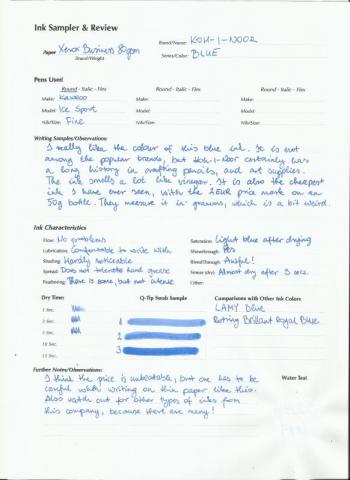 Ink Sampler & Review
Brand/Name: KOH-I-NOOR
Paper Xerox Business 80gsm
Brand/Weight
Series/Color: BLUE
Pens Used
Round - Italic - Flex Round - Italic - Flex Round - Italic - Flex
Make: Kaweco Make: Make:
Model: Ice Sport Model: Model:
Nib/Size: Fine Nib/Size: Nib/Size:
Writing Samples/Observations:
I really like the colour of this blue ink. It is not
among the popular brands, but Koh-I-Noor certainly has
a long history in crafting pencils, and art supplies.
The ink smells a lot like vinegar. It is also the cheapest
ink I have ever seen, with the 2EUR price mark on an
50g bottle. They measure it in grammes, which is a bit weird.
Ink Characteristics
Flow: No problems Saturation: Light blue after drying
Lubrication: Comfortable to write with Showthrough: Yes
Shading: Hardly noticeable BleedThrough: Awful!
Spread: Does not tolerate hand grease Smear (dry): Almost dry after 3 secs.
Feathering: There is some, but not intense Other:
Dry Time: Q-Tip Swab Sample Comparisons with Other Ink Colors
1 Sec. LAMY Blue
1 Rotring Brillant Royal Blue
2
10 Sec.
3
15 Sec.
Further Notes/Observations:
I think the price is unbeatable, but one has to be Water Test
careful while writing on thin paper like this.
Also watch out for other types of inks from
this company, because there are many!